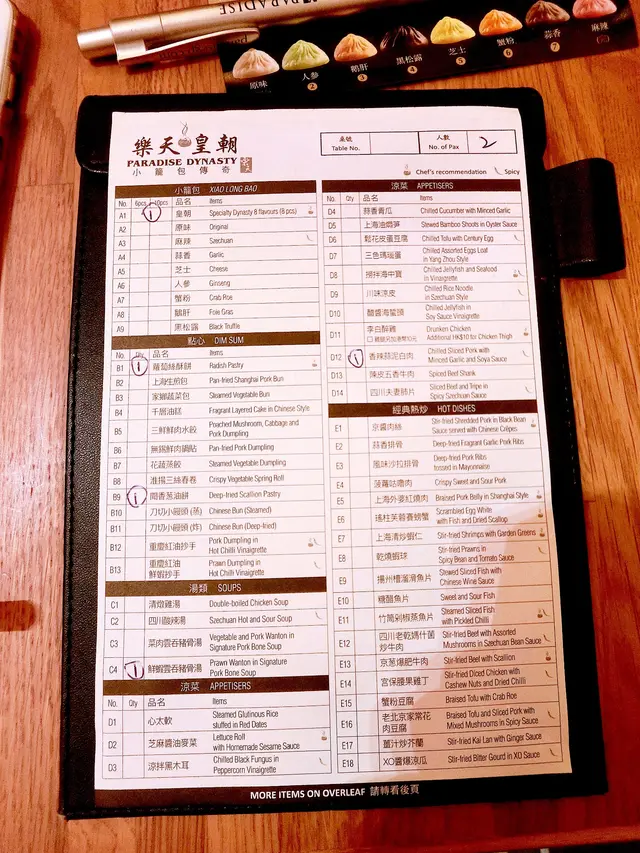 PARADISE
原味
人參 2
鵝肝 3
黑松露 4
芝士 5
蟹粉 6
蒜香 7
麻辣
樂天皇朝
PARADISE DYNASTY
小籠包傳奇
桌號 Table No.
人數 No. of Pax 2
Chef's recommendation Spicy
小籠包 XIAO LONG BAO
No. 6pcs 10pcs 品名 Items
A1 1 皇朝 Specialty Dynasty 8 flavours (8 pcs)
A2 原味 Original
A3 麻辣 Szechuan
A4 蒜香 Garlic
A5 芝士 Cheese
A6 人參 Ginseng
A7 蟹粉 Crab Roe
A8 鵝肝 Foie Gras
A9 黑松露 Black Truffle
點心 DIM SUM
No. Qty 品名 Items
B1 1 蘿蔔絲酥餅 Radish Pastry
B2 上海生煎包 Pan-fried Shanghai Pork Bun
B3 家鄉蔬菜包 Steamed Vegetable Bun
B4 千層油糕 Fragrant Layered Cake in Chinese Style
B5 三鮮鮮肉水餃 Poached Mushroom, Cabbage and
Pork Dumpling
B6 無錫鮮肉鍋貼 Pan-fried Pork Dumpling
B7 花蔬蒸餃 Steamed Vegetable Dumpling
B8 淮揚三絲春卷 Crispy Vegetable Spring Roll
B9 1 開香葱油餅 Deep-fried Scallion Pastry
B10 刀切小饅頭 (蒸) Chinese Bun (Steamed)
B11 刀切小饅頭 (炸) Chinese Bun (Deep-fried)
B12 重慶紅油抄手 Pork Dumpling in
Hot Chilli Vinaigrette
B13 重慶紅油鮮蝦抄手 Prawn Dumpling in
Hot Chilli Vinaigrette
湯類 SOUPS
C1 清燉雞湯 Double-boiled Chicken Soup
C2 四川酸辣湯 Szechuan Hot and Sour Soup
C3 菜肉雲吞豬骨湯 Vegetable and Pork Wanton in
Signature Pork Bone Soup
C4 1 鮮蝦雲吞豬骨湯 Prawn Wanton in Signature
Pork Bone Soup
涼菜 APPETISERS
No. Qty 品名 Items
D1 心太軟 Steamed Glutinous Rice
stuffed in Red Dates
D2 芝麻醬油麥菜 Lettuce Roll
with Homemade Sesame Sauce
D3 涼拌黑木耳 Chilled Black Fungus in
Peppercorn Vinaigrette
涼菜 APPETISERS
No. Qty 品名 Items
D4 蒜香青瓜 Chilled Cucumber with Minced Garlic
D5 上海油燜笋 Stewed Bamboo Shoots in Oyster Sauce
D6 鬆花皮蛋豆腐 Chilled Tofu with Century Egg
D7 三色瑪瑙蛋 Chilled Assorted Eggs Loaf
in Yang Zhou Style
D8 撈拌海中寶 Chilled Jellyfish and Seafood
in Vinaigrette
D9 川味涼皮 Chilled Rice Noodle
in Szechuan Style
D10 醋醬海蜇頭 Chilled Jellyfish in
Soy Sauce Vinaigrette
D11 李白醉雞 Drunken Chicken
Additional HK$10 for Chicken Thigh
D12 1 香辣蒜泥白肉 Chilled Sliced Pork with
Minced Garlic and Soya Sauce
D13 陳皮五香牛肉 Spiced Beef Shank
D14 四川夫妻肺片 Sliced Beef and Tripe in
Spicy Szechuan Sauce
經典熱炒 HOT DISHES
E1 京醬肉絲 Stir-fried Shredded Pork in Black Bean
Sauce served with Chinese Crêpes
E2 蒜香排骨 Deep-fried Fragrant Garlic Pork Ribs
E3 風味沙拉排骨 Deep-fried Pork Ribs
tossed in Mayonnaise
E4 菠蘿咕嚕肉 Crispy Sweet and Sour Pork
E5 上海外婆紅燒肉 Braised Pork Belly in Shanghai Style
E6 瑤柱芙蓉賽螃蟹 Scrambled Egg White
with Fish and Dried Scallop
E7 上海清炒蝦仁 Stir-fried Shrimps with Garden Greens
E8 乾燒蝦球 Stir-fried Prawns in
Spicy Bean and Tomato Sauce
E9 揚州糟溜魚片 Stewed Sliced Fish with
Chinese Wine Sauce
E10 糖醋魚片 Sweet and Sour Fish
E11 竹筒剁椒蒸魚片 Steamed Sliced Fish
with Pickled Chilli
E12 四川老乾媽什菌炒牛肉 Stir-fried Beef with Assorted
Mushrooms in Szechuan Bean Sauce
E13 京葱爆肥牛肉 Stir-fried Beef with Scallion
E14 宮保腰果雞丁 Stir-fried Diced Chicken with
Cashew Nuts and Dried Chilli
E15 蟹粉豆腐 Braised Tofu with Crab Roe
E16 老北京家常花肉豆腐 Braised Tofu and Sliced Pork with
Mixed Mushrooms in Spicy Sauce
E17 薑汁炒芥蘭 Stir-fried Kai Lan with Ginger Sauce
E18 XO醬爆涼瓜 Stir-fried Bitter Gourd in XO Sauce
MORE ITEMS ON OVERLEAF 請轉看後頁